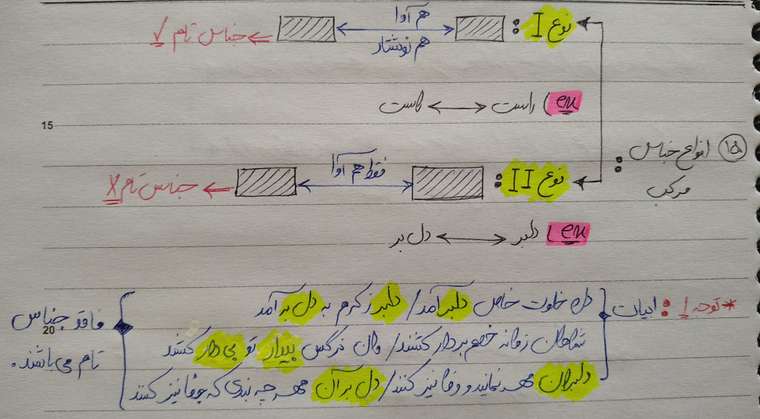 نوع I : هم آوا هم نوشتار ← جناس تام ✓
ex) راست ↔ 
15
۱۵ انواع جناس مرکب :
نوع II : فقط هم آوا ← جناس تام X
ex) دلبر ↔ دل بر
* توجه 1 : ابیات
در خلوت خاص دلبر آمد / دلبر ز کرم به دل بر آمد
شاهان زمانه خصم بردار کنند / وان نرگس بیدار تو بی دار کنند
دلبران مهر نمایند و وفا نیز کنند / دل بر آن مهر چه بندی که جفا نیز کنند
20
فاقد جناس
تام می باشد.